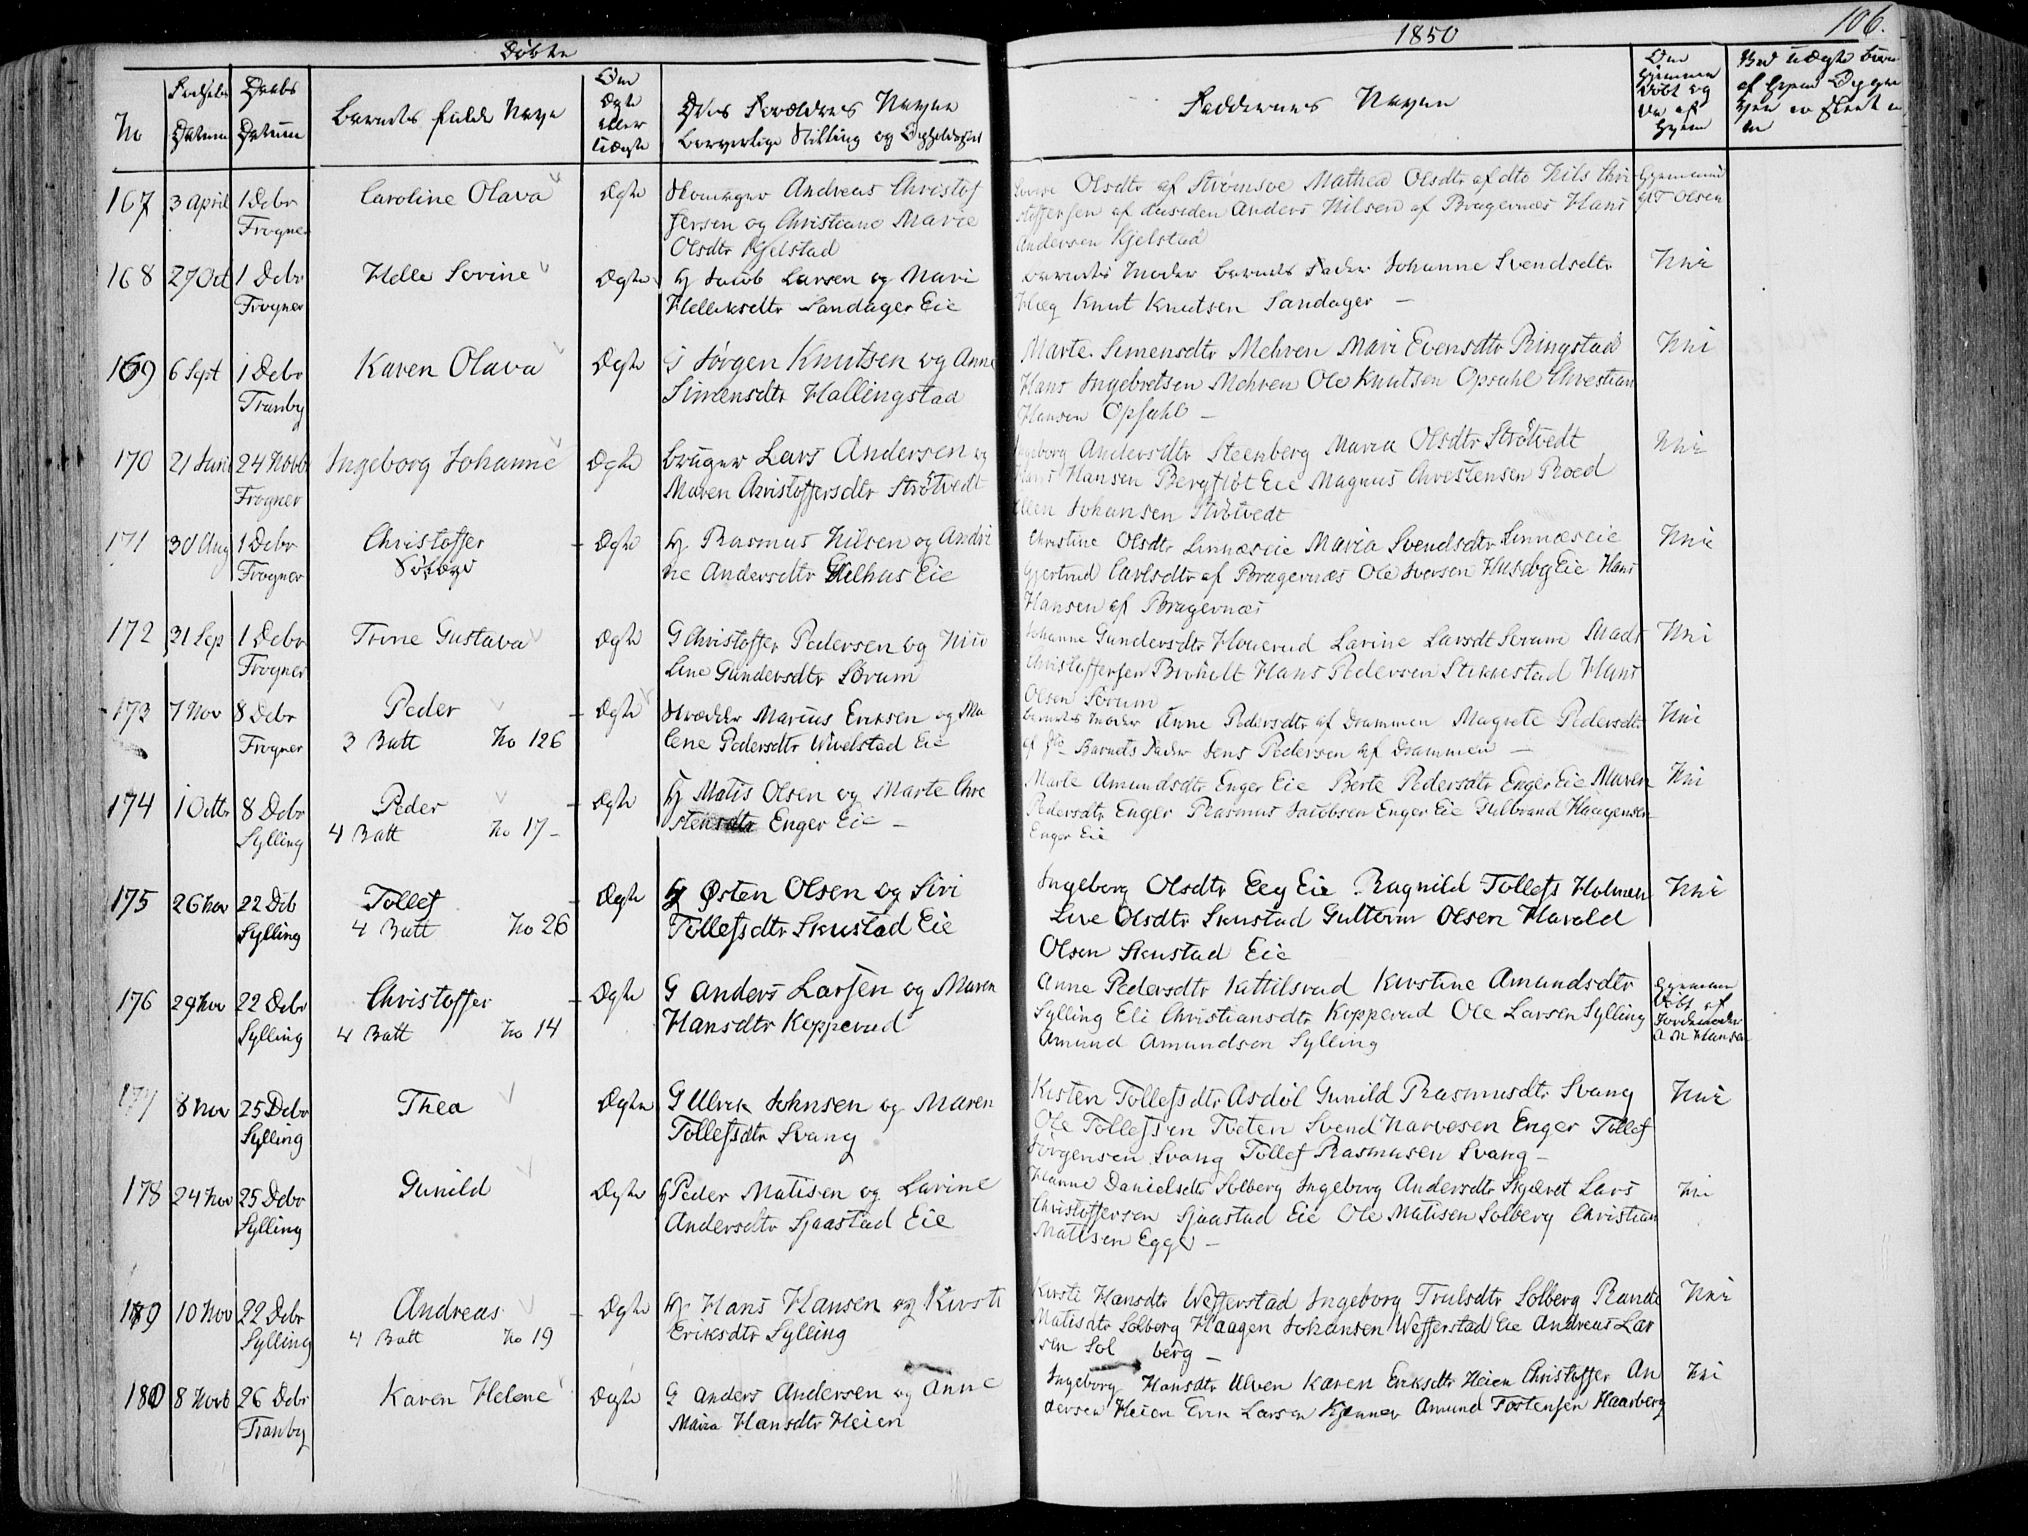 Døbte
1850
106.
No
Fødsels Datum
Daabs Datum
Barnets fulde Navn
Om Ægte eller Uægte
Forældres Navne
borgerlige Stilling og Opholdssted
Faddernes Navne
Om hjemmedøbt og da af hvem
167
3 April
1 Debr
Frogner
Caroline Olava
Ægte
Skomager Andreas Christof
fersen og Christiane Marie
Olsdtr Kjelstad
Olsdtr af Strømsøe Mathea Olsdtr af dto Nils Chri
stoffersen af Anders Nilsen af Bragernæs Hans
Andersen Kjelstad
Olsen
168
27 Oct
1 Debr
Frogner
Helle Sovine
Ægte
Jacob Larsen og Mari
Helliksdtr Landager Eie
Barnets Moder Barnets Fader Johanne Svendsdtr
Hæg Knut Knutsen Landager —
Nei
169
6 Sept
1 Debr
Tranby
Karen Olava
Ægte
G Jørgen Knutsen og Anne
Simensdtr Hallingstad
Marte Simensdtr Mehren Mari Evensdtr Ringstad
Hans Ingebretsen Mehren Ole Knutsen Opsahl Christian
Hansen Opsahl —
Nei
170
21 Juni
24 Novb
Frogner
Ingeborg Johanne
Ægte
bruger Lars Andersen og
Maren Christoffersdtr Strøtvedt
Ingeborg Andersdtr Steenberg Maria Olsdtr Strøtvedt
Hans Hansen Bergfløt Eie Magnus Christensen Roed
Ellen Johansen Strøtvedt
Nei
171
30 Aug
1 Debr
Frogner
Christoffer
Ægte
Hj Rasmus Nilsen og Andri
ne Andersdtr Gilhus Eie
Christine Olsdtr Linnæseie Maria Svendsdtr Linnæseie
Gjertrud Carlsdtr af Bragernæs Ole Iversen Husebg Eie Hans
Hansen af Bragernæs
Nei
172
31 Sep
1 Debr
Frogner
Trine Gustava
Ægte
G Christoffer Pedersen og Nico
line Gundersdtr Sørum
Johanne Gundersdtr Houerud Lavine Larsdt Sørum Mads
Christoffersen Hans Pedersen Stikkestad Hans
Olsen Sørum
Nei
173
7 Nov
8 Debr
Frogner
Peder
3 Batt No 126
Ægte
Skrædder Marius Eriksen og Ma
lene Pedersdtr Wivelstad Eie
Barnets Moder Anne Pedersdtr af Drammen Magrete Pedersdtr
af Barnets Fader Jens Pedersen af Drammen —
Nei
174
1 Octbr
8 Debr
Sylling
Peder
4 Batt No 17 -
Ægte
Hj Matis Olsen og Marte Chri
stensdtr Enger Eie —
Marte Amundsdtr Enger Eie Berte Pedersdtr Enger Eie Maren
Pedersdtr Enger Rasmus Jacobsen Enger Eie Gulbrand Haagensen
Enger Eie
Nei
175
26 Nov
22 Deb
Sylling
Tollef
4 Batt No 26
Ægte
Hj Østen Olsen og Siri
Tollefsdtr Skustad Eie
Ingeborg Olsdtr Eeg Eie Ragnild Tollefs Holmen
Live Olsdtr Skustad Guttorm Olsen Harald
Olsen Skustad Eie
Nei
176
29 Nov
22 Debr
Sylling
Christoffer
4 Batt No 14
Ægte
G Anders Larsen og Maren
Hansdtr Kopperud
Anne Pedersdtr Kittilsrud Kirstine Amundsdtr
Sylling Eli Christiansdtr Kopperud Ole Larsen Sylling
Amund Amundsen Sylling
Hjemme
døbt af
Jordemoder
A M Hansen
177
8 Nov
25 Debr
Sylling
Thea
Ægte
G Ulrik Johnsen og Maren
Tollefsdtr Svang
Kisten Tollefsdtr Asdøl Gunild Rasmusdtr Svang
Ole Tollefsen Tveten Svend Narvesen Enger Tollef
Jørgensen Svang Tollef Rasmusen Svang —
Nei
178
24 Nov
25 Debr
Sylling
Gunild
Ægte
Hj Peder Matisen og Lavine
Andersdtr Sjaastad Eie
Hanne Danielsdtr Solberg Ingeborg Andersdtr Skjæret Lars
Christoffersen Sjaastad Eie Ole Matisen Solberg Christian
Matisen Egge —
Nei
179
10 Nov
22 Debr
Sylling
Andreas
4 Batt No 19
Ægte
Hj Hans Hansen og Kirsti
Eriksdtr Sylling
Kirsti Hansdtr Wefferstad Ingeborg Trulsdtr Solberg Randi
Matisdtr Solberg Haagen Johansen Wefferstad Eie Andreas Lar
sen Sol berg —
Nei
180
8 Novb
26 Debr
Tranby
Karen Helene
Ægte
G Anders Andersen og Anne
Maria Hansdtr Heien
Ingeborg Hansdtr Ulven Karen Eriksdtr Heien Christoffer An
dersen Heien Even Larsen Kjenner Amund Tostensen Haarberg
Nei